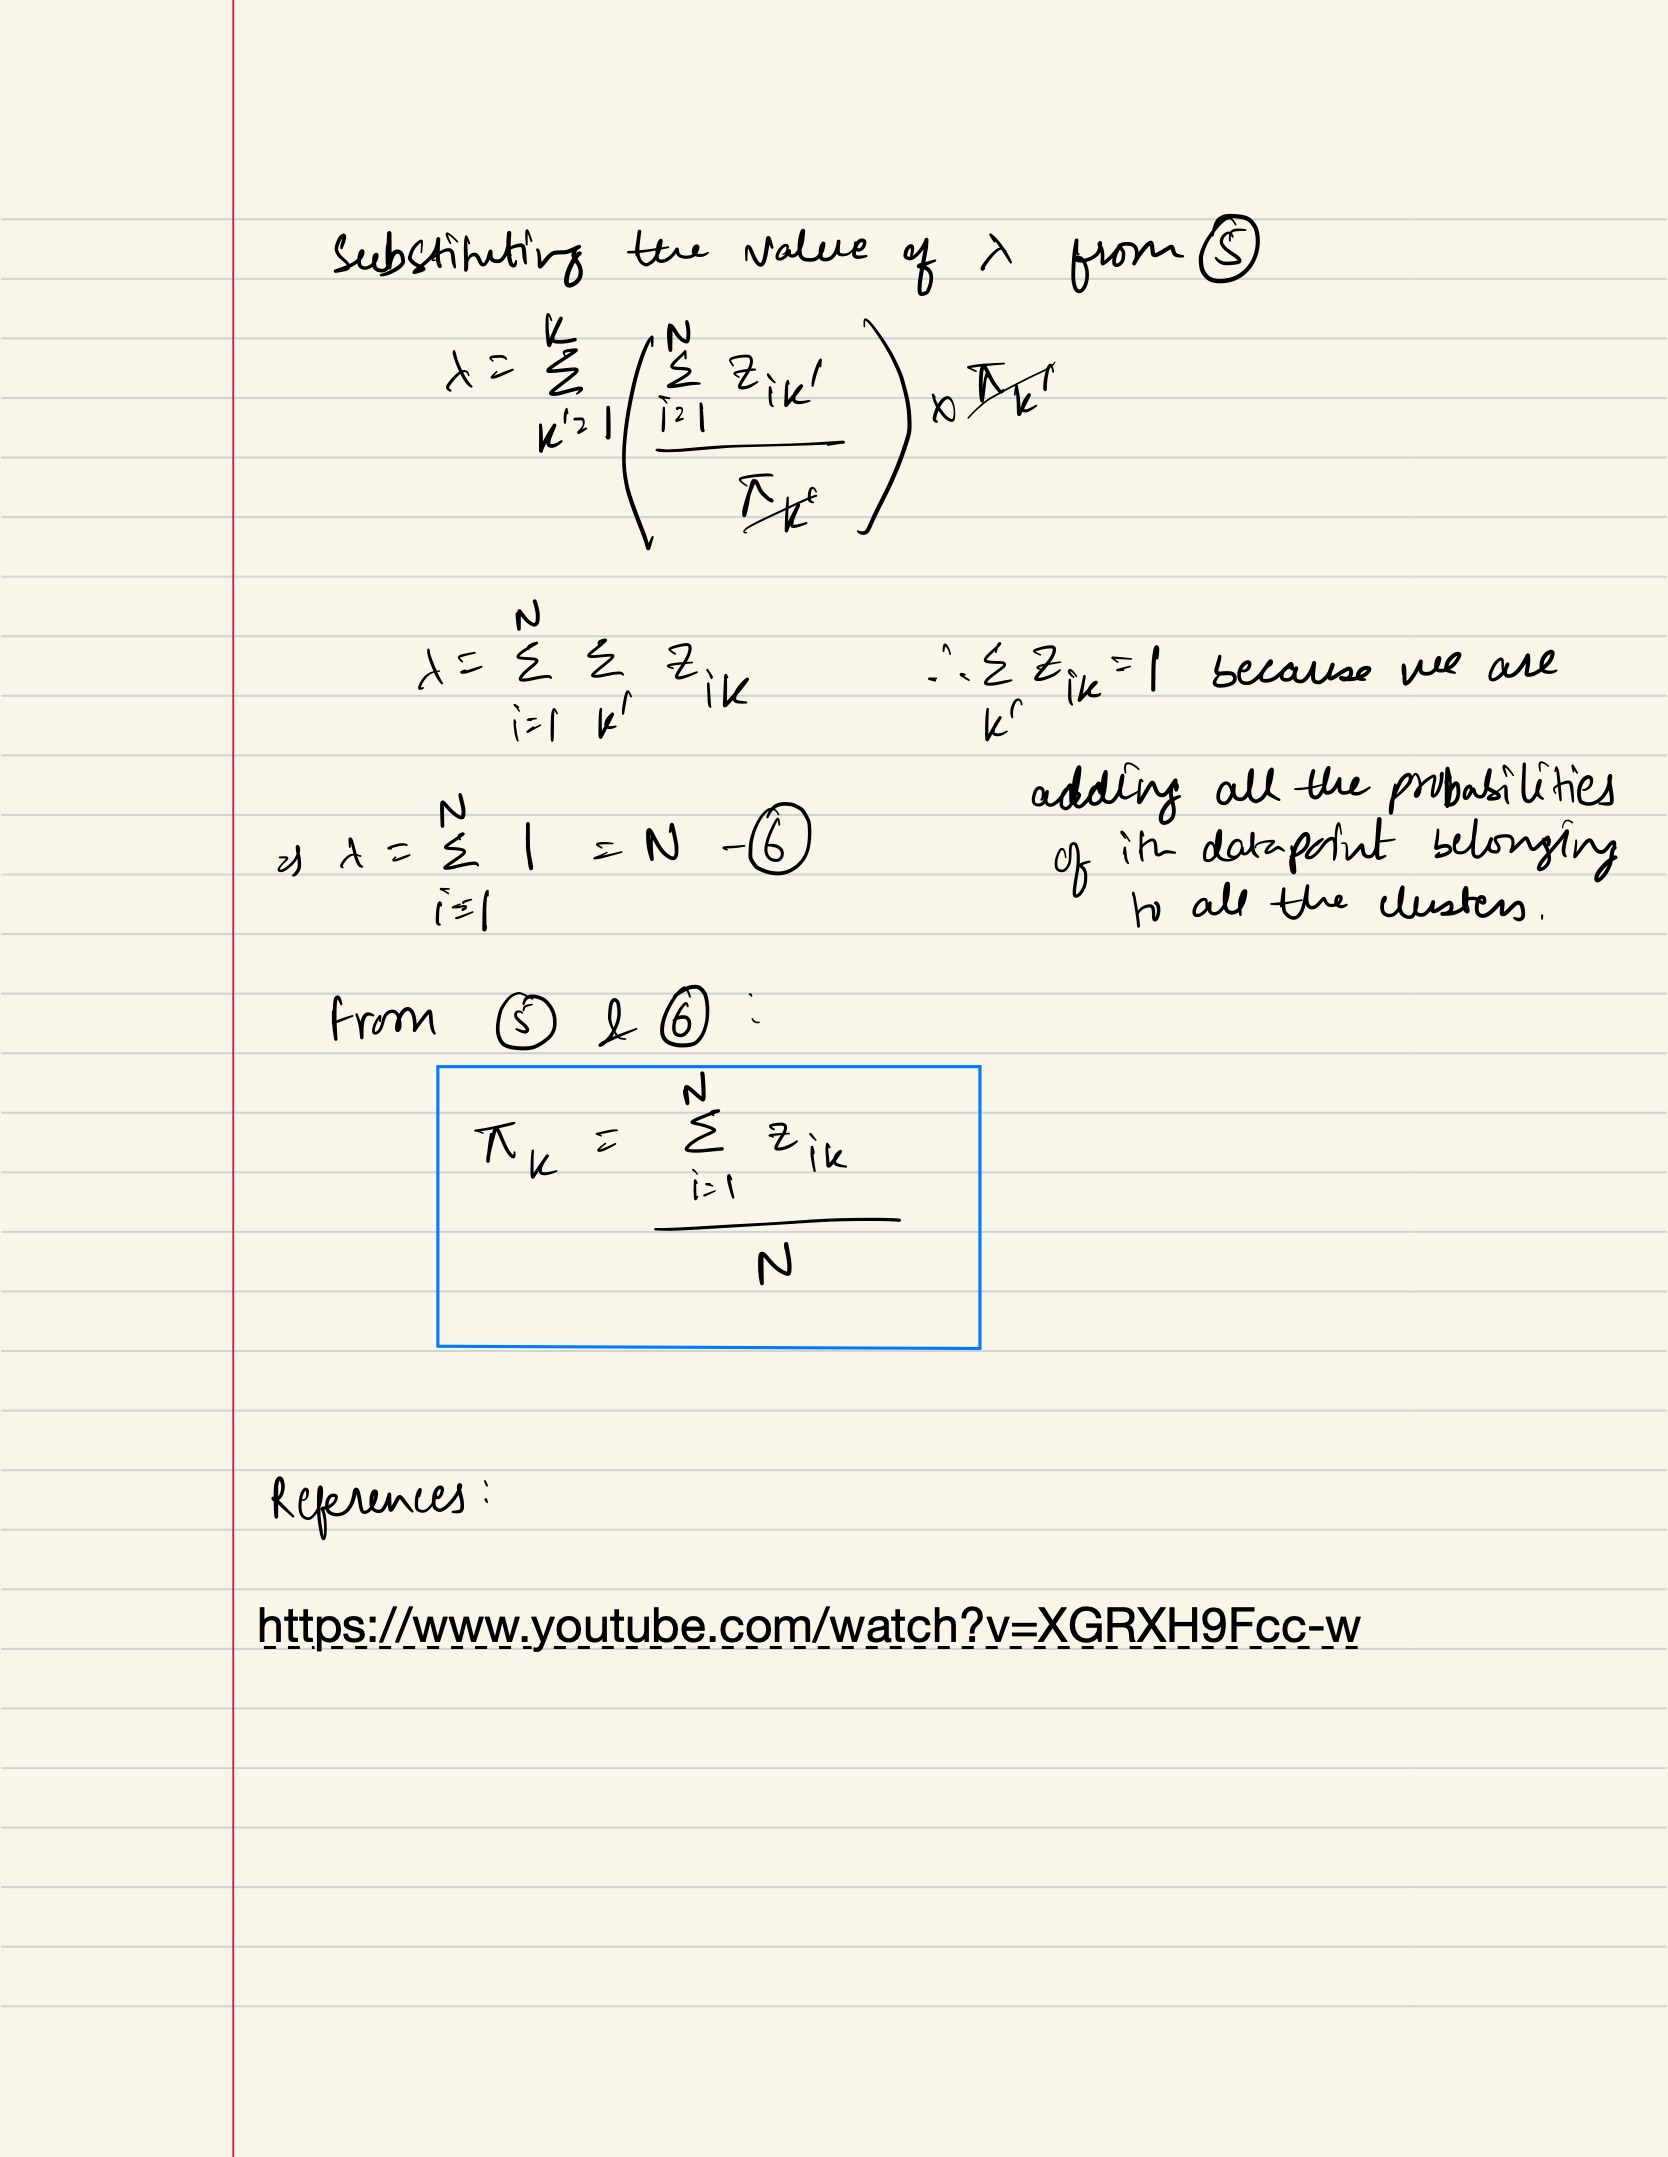 Substituting the value of λ from ⑤
λ = Σ_{k'=1}^{K} ( Σ_{i=1}^{N} z_{ik'} / π_{k'} ) × π_{k'}
λ = Σ_{i=1}^{N} Σ_{k'} z_{ik} ∴ Σ_{k'} z_{ik} = 1 because we are
adding all the probabilities
⇒ λ = Σ_{i=1}^{N} 1 = N - ⑥ of ith datapoint belonging
to all the clusters.
From ⑤ & ⑥ :
π_k = Σ_{i=1}^{N} z_{ik} / N
References:
https://www.youtube.com/watch?v=XGRXH9Fcc-w